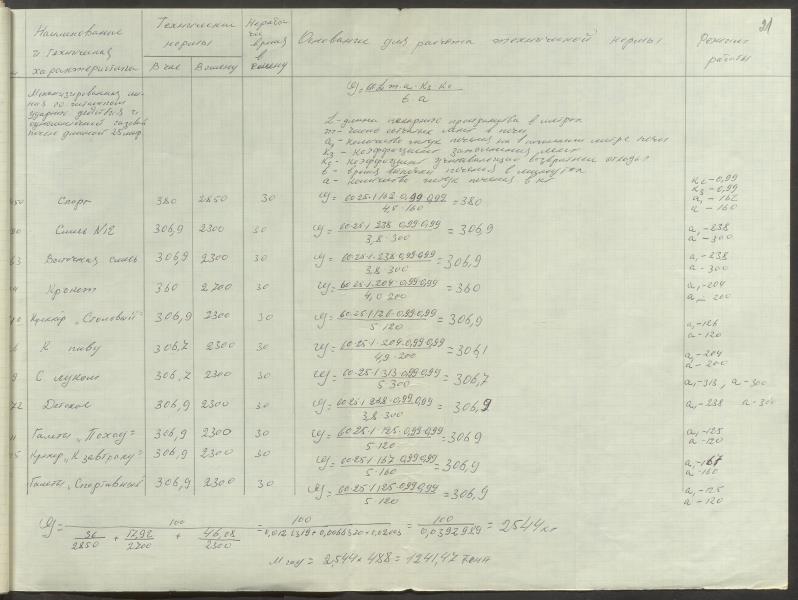 21
Наименование и техничиская характеристика
Технические нормы
В час
В смену
Нерабочие время в смену
Основание для расчета технической нормы
Режимы работы
Механизированная линия со
ударного действия и
газовой
печью длинной 25 м
g = 60 L m a₁ k₃ kс / t · a
L – длина пекарного пространства в метрах
m – число лент в печи
a₁ – количество штук печенья на 1 погонном метре печи
k₃ – коэффициент заполнения
kс – коэффициент учитывающий возвратные отходы
t – время выпечки печенья в минутах
a – количество штук печенья в кг
kс – 0,99
k₃ – 0,99
Спорт 380 2850 30 g = 60·25·1·162·0,99·0,99 / 4,8·160 = 380 a₁ – 162 a – 160
Смесь №2 306,9 2300 30 g = 60·25·1·238·0,99·0,99 / 3,8·300 = 306,9 a₁ – 238 a – 300
Восточная смесь 306,9 2300 30 g = 60·25·1·238·0,99·0,99 / 3,8·300 = 306,9 a₁ – 238 a – 300
360 2700 30 g = 60·25·1·204·0,99·0,99 / 4,0·200 = 360 a₁ – 204 a – 200
Крекер „Столовый" 306,9 2300 30 g = 60·25·1·126·0,99·0,99 / 5·120 = 306,9 a₁ – 126 a – 120
К пиву 306,7 2300 30 g = 60·25·1·204·0,99·0,99 / 4,9·200 = 306,1 a₁ – 204 a – 200
С луком 306,7 2300 30 g = 60·25·1·313·0,99·0,99 / 5·300 = 306,7 a₁ – 313, a – 300
Детское 306,9 2300 30 g = 60·25·1·238·0,99·0,99 / 3,8·300 = 306,9 a₁ – 238 a – 300
Галеты „Поход" 306,9 2300 30 g = 60·25·1·125·0,99·0,99 / 5·120 = 306,9 a₁ – 125 a – 120
Крекер „К завтраку" 306,9 2300 30 g = 60·25·1·167·0,99·0,99 / 5·160 = 306,9 a₁ – 167 a – 160
Галеты „Спортивные" 306,9 2300 30 g = 60·25·1·125·0,99·0,99 / 5·120 = 306,9 a₁ – 125 a – 120
g = 100 / (36/2850 + 17,92/2700 + 46,08/2300) = 100 / = 100 / 0,0392989 = 2544 кг
М год = 2,544 × 488 = 1241,47 тонн